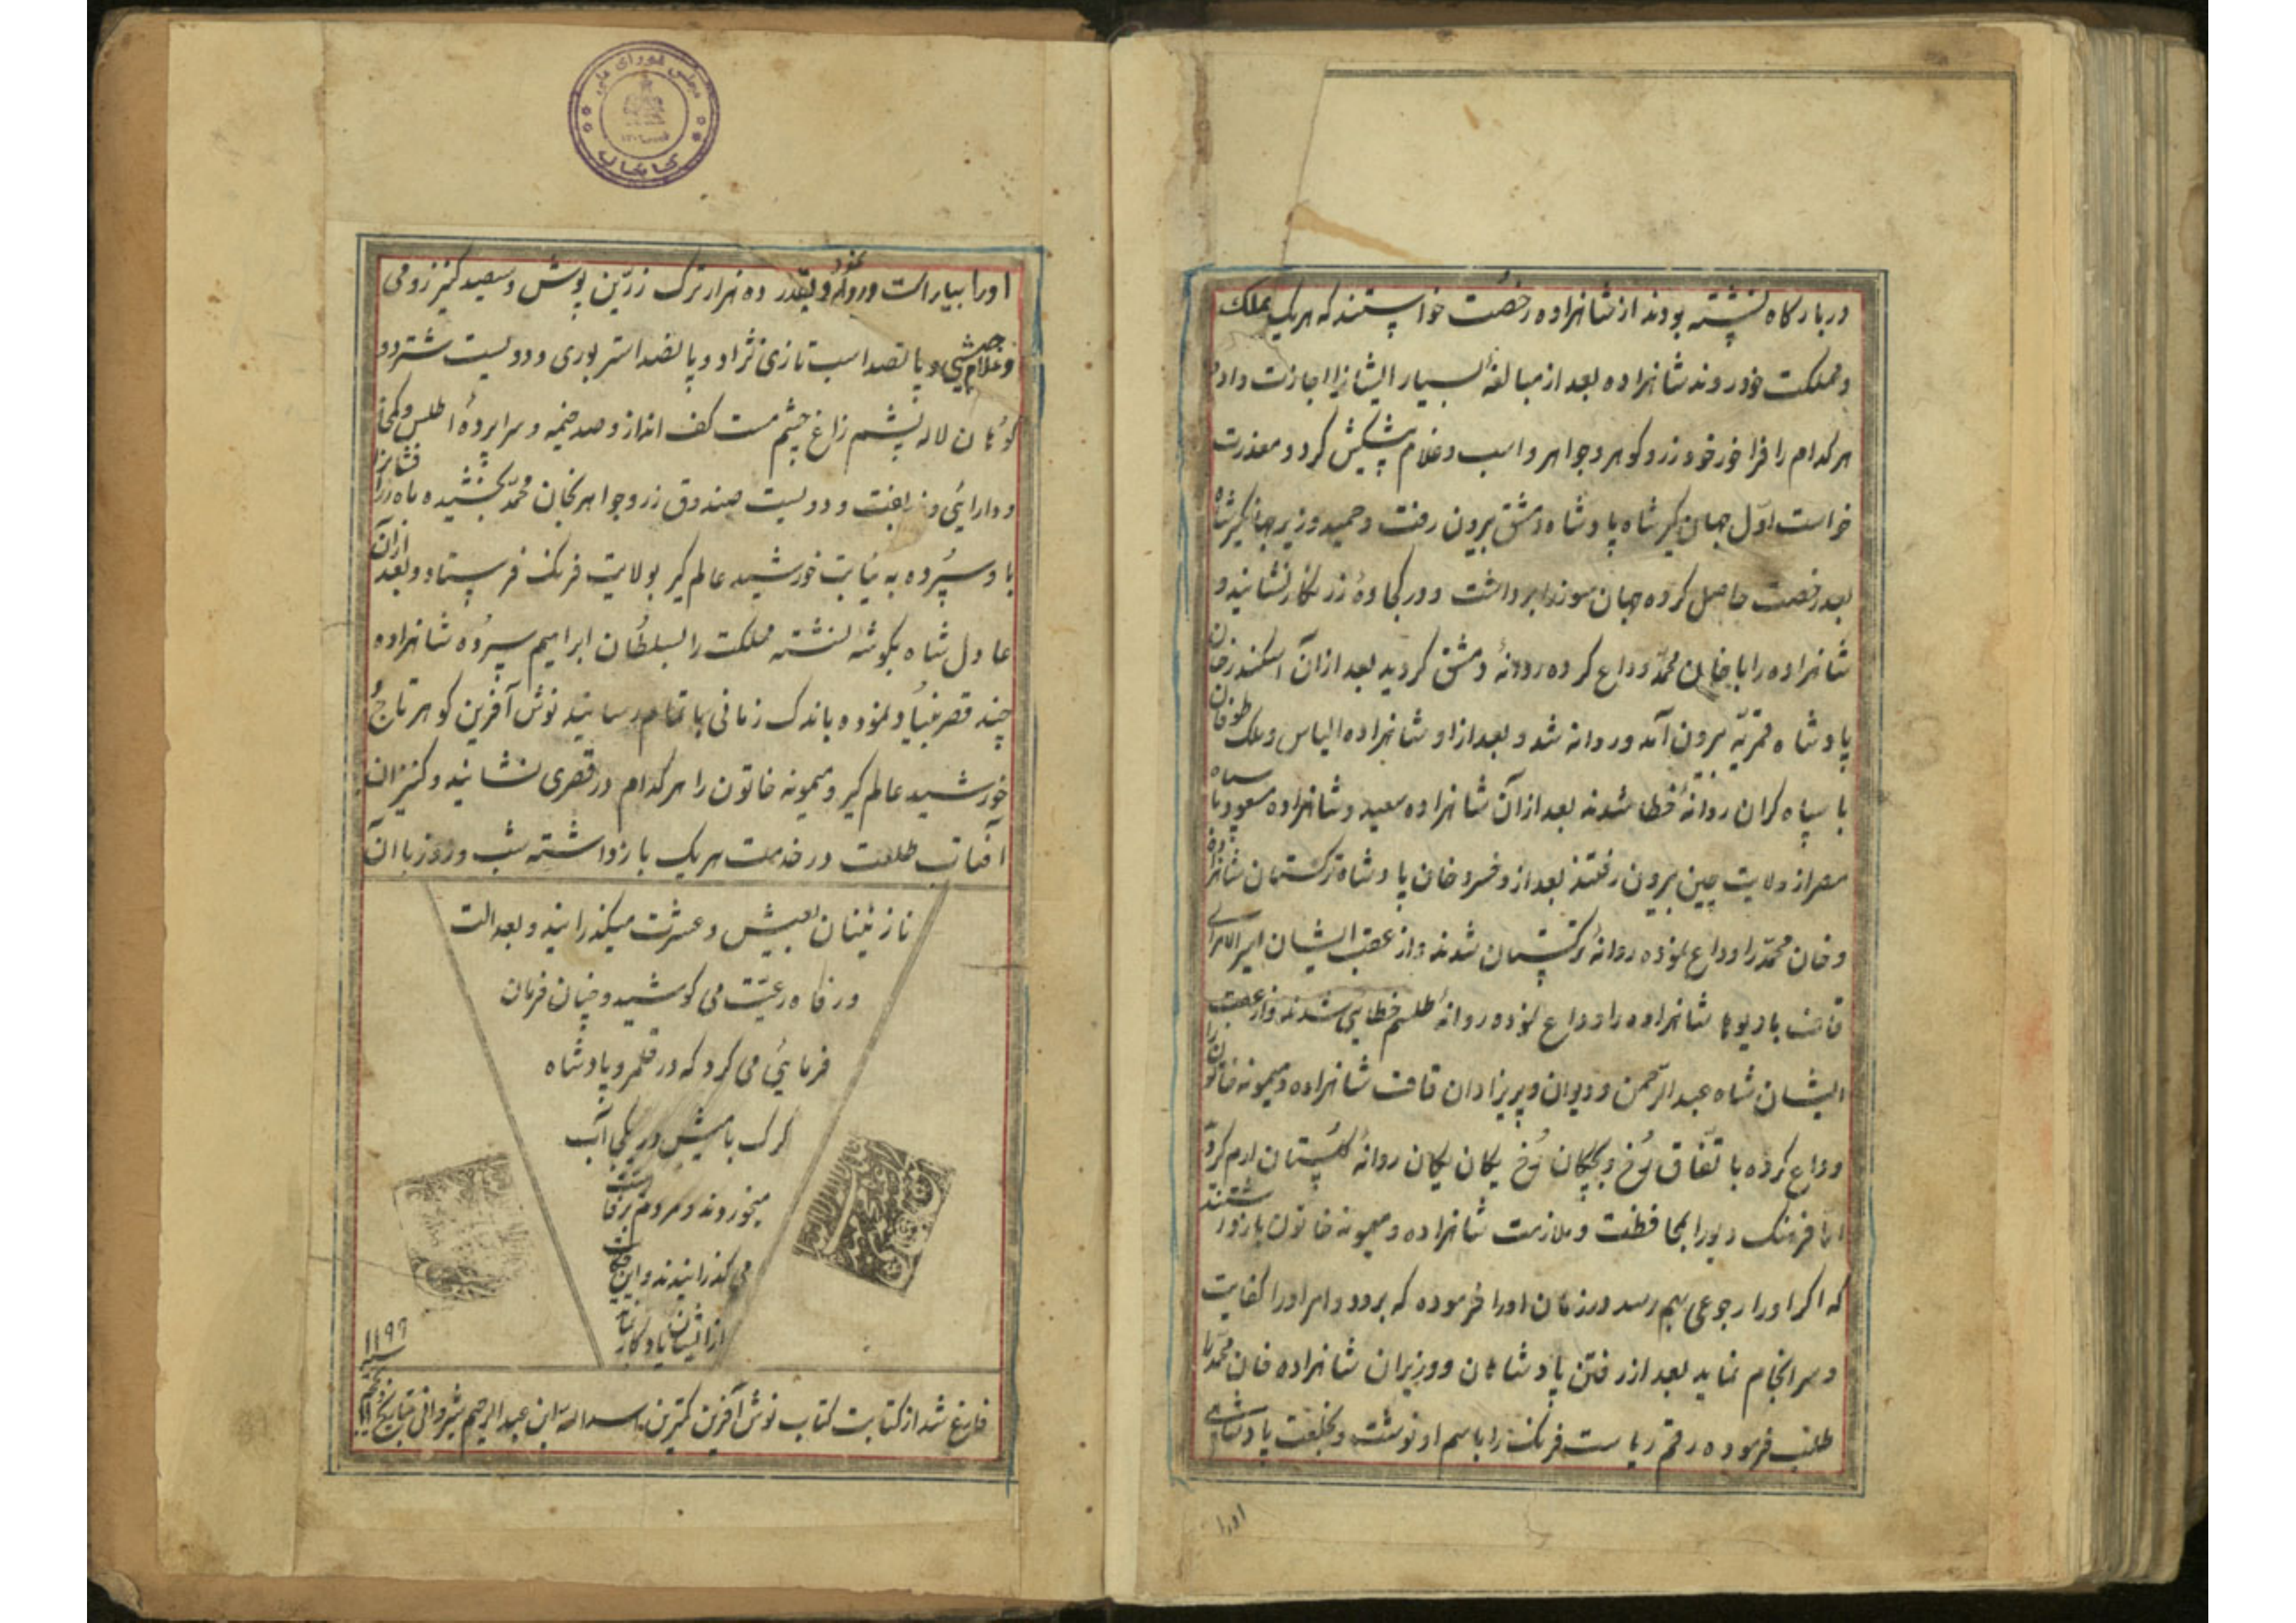 دربارگاه نشسته بودند از شاهزاده رخصت خواستند که هریک بملک
و مملکت خود روند شاهزاده بعد از مبالغهٔ بسیار ایشانرا اجازت داد
هر کدام را فراخور خود زر و گوهر و جواهر و اسب و غلام پیشکش کرد و معذرت
خواست اوّل جهان گیر شاه پادشاه دمشق بیرون رفت و حمید وزیر جهانگیر شاه
بعد رخصت حاصل کرده جهان سوز را برداشت و در کجاوهٔ زرنگار نشانید و
شاهزاده را با خان محمّد وداع کرده روانهٔ دمشق گردید بعد از آن اسکندر خان
پادشاه قمریّه بیرون آمد و روانه شد و بعد از او شاهزاده الیاس و ملک طوفان
با سپاه گران روانهٔ خطا شدند بعد از آن شاهزاده سعید و شاهزاده مسعود با سپاه
مصر از ولایت چین بیرون رفتند بعد از و خسرو خان پادشاه ترکستان شاهزاده
و خان محمّد را وداع نموده روانهٔ ترکستان شدند و از عقب ایشان امیر الامرای
قاف با دیوها شاهزاده را وداع نموده روانهٔ طلسم خطایی شدند و از عقب
ایشان شاه عبدالرّحمن و دیوان و پریزادان قاف شاهزاده و میمونه خاتون را
وداع کرده باتّفاق رُخ و بچگان رُخ یکان یکان روانهٔ گلستان ارم کرد
امّا فرهنگ دیو را بمحافظت و ملازمت شاهزاده و میمونه خاتون بازداشتند
که اگر او را رجوعی بهم رسد در زمان او را فرموده که برود و امر او را کفایت
و سرانجام نماید بعد از رفتن پادشاهان و وزیران شاهزاده خان محمّد را
طلب فرموده رقم ریاست فرنگ را باسم او نوشت و بخلعت پادشاهی
اورا
اورا بیاراست و روانه نمود و بقدر ده هزار ترک زرّین پوش و سیصد کنیز رومی
و غلام حبشی و پانصد اسب تازی نژاد و پانصد استر بوری و دویست شتر دو
کوهان لاله پشم زاغ چشم مست کف انداز و صد خیمه و سراپردهٔ اطلس و کمخا
و دارایی و زربفت و دویست صندوق زر و جواهر بخان محمّد بخشیده ماه
باو سپُرده به نیابت خورشید عالم گیر بولایت فرنگ فرستاد و بعد از آن
عادل شاه بگوشهٔ نشسته مملکت را بسلطان ابراهیم سپرده شاهزاده
چند قصر بنیاد نموده باندک زمانی باتمام رسانید نوش آفرین گوهر تاج
خورشید عالم گیر و میمونه خاتون را هر کدام در قصری نشانید و کنیزان
آفتاب طلعت در خدمت هریک بازداشته شب و روز با آن
نازنینان بعیش و عشرت میگذرانید و بعدالت
و رفاه رعیّت می کوشید و چنان فرمان
فرمایی می کرد که در قلمرو پادشاه
گرگ با میش در یکجا آب
میخوردند و مردم برفاهیت
می گذرانیدند و این
از ایشان یادگار
۱۱۹۹
سنه
فارغ شد از کتابت کتاب نوش آفرین کمترین اسدالله ابن عبدالرحیم شیروانی بتاریخ
مجلس شورای ملی
کتابخانه